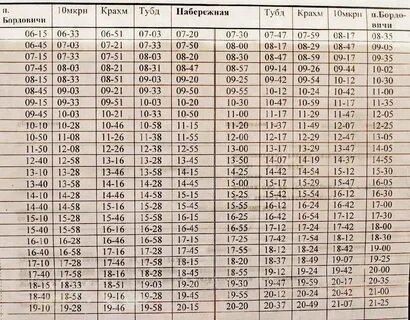 п. Бордовичи 10мкрн Крахм Тубд Набережная Тубд Крахм 10мкрн п.Бордовичи
06-15 06-33 06-51 07-03 07-20 07-30 07-47 07-59 08-17 08-35
06-45 07-03 07-21 07-33 07-50 08-00 08-17 08-29 08-47 09-05
07-15 07-33 07-51 08-03 08-20 08-30 08-47 08-59 09-17 09-35
07-45 08-03 08-21 08-31 08-47 08-57 09-14 09-26 09-44 10-02
08-15 08-33 08-51 09-03 09-20 09-25 09-42 09-54 10-12 10-30
08-45 09-03 09-21 09-33 09-50 09-55 10-12 10-24 10-42 11-00
09-15 09-33 09-51 10-03 10-20 10-30 10-47 10-59 11-17 11-35
09-45 10-03 10-21 10-33 10-50 11-00 11-17 11-29 11-47 12-05
10-10 10-28 10-46 10-58 11-15 11-20 11-37 11-49 12-07 12-25
10-50 11-08 11-26 11-38 11-55 12-00 12-17 12-29 12-47 13-05
11-50 12-08 12-26 12-38 12-55 13-00 13-17 13-29 13-47 14-05
12-40 12-58 13-16 13-28 13-45 13-50 14-07 14-19 14-37 14-55
13-10 13-28 13-46 13-58 14-15 14-25 14-42 14-54 15-12 15-30
13-40 13-58 14-16 14-28 14-45 15-00 15-17 15-29 15-47 16-05
14-10 14-28 14-46 14-58 15-15 15-25 15-42 15-54 16-12 16-30
14-40 14-58 15-16 15-28 15-45 15-55 16-12 16-24 16-42 17-00
15-10 15-28 15-46 15-58 16-15 16-25 16-42 16-54 17-12 17-30
15-40 15-58 16-16 16-28 16-45 16-55 17-12 17-24 17-42 18-00
16-10 16-28 16-46 16-58 17-15 17-25 17-42 17-54 18-12 18-30
16-40 16-58 17-16 17-28 17-45 17-55 18-12 18-24 18-42 19-00
17-10 17-28 17-46 17-58 18-15 18-20 18-37 18-49 19-07 19-25
17-40 17-58 18-16 18-28 18-45 18-55 19-12 19-24 19-42 20-00
18-15 18-33 18-51 19-03 19-20 19-30 19-47 19-59 20-17 20-35
18-40 18-58 19-16 19-28 19-45 19-55 20-12 20-24 20-42 21-00
19-10 19-28 19-46 19-58 20-15 20-20 20-37 20-49 21-07 21-25